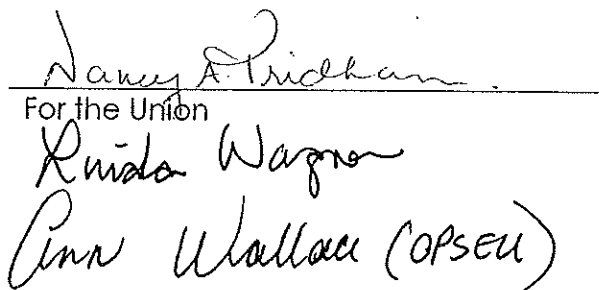 Nancy A. Pridham.
For the Union
Linda Wagner
Ann Wallace (OPSEU)